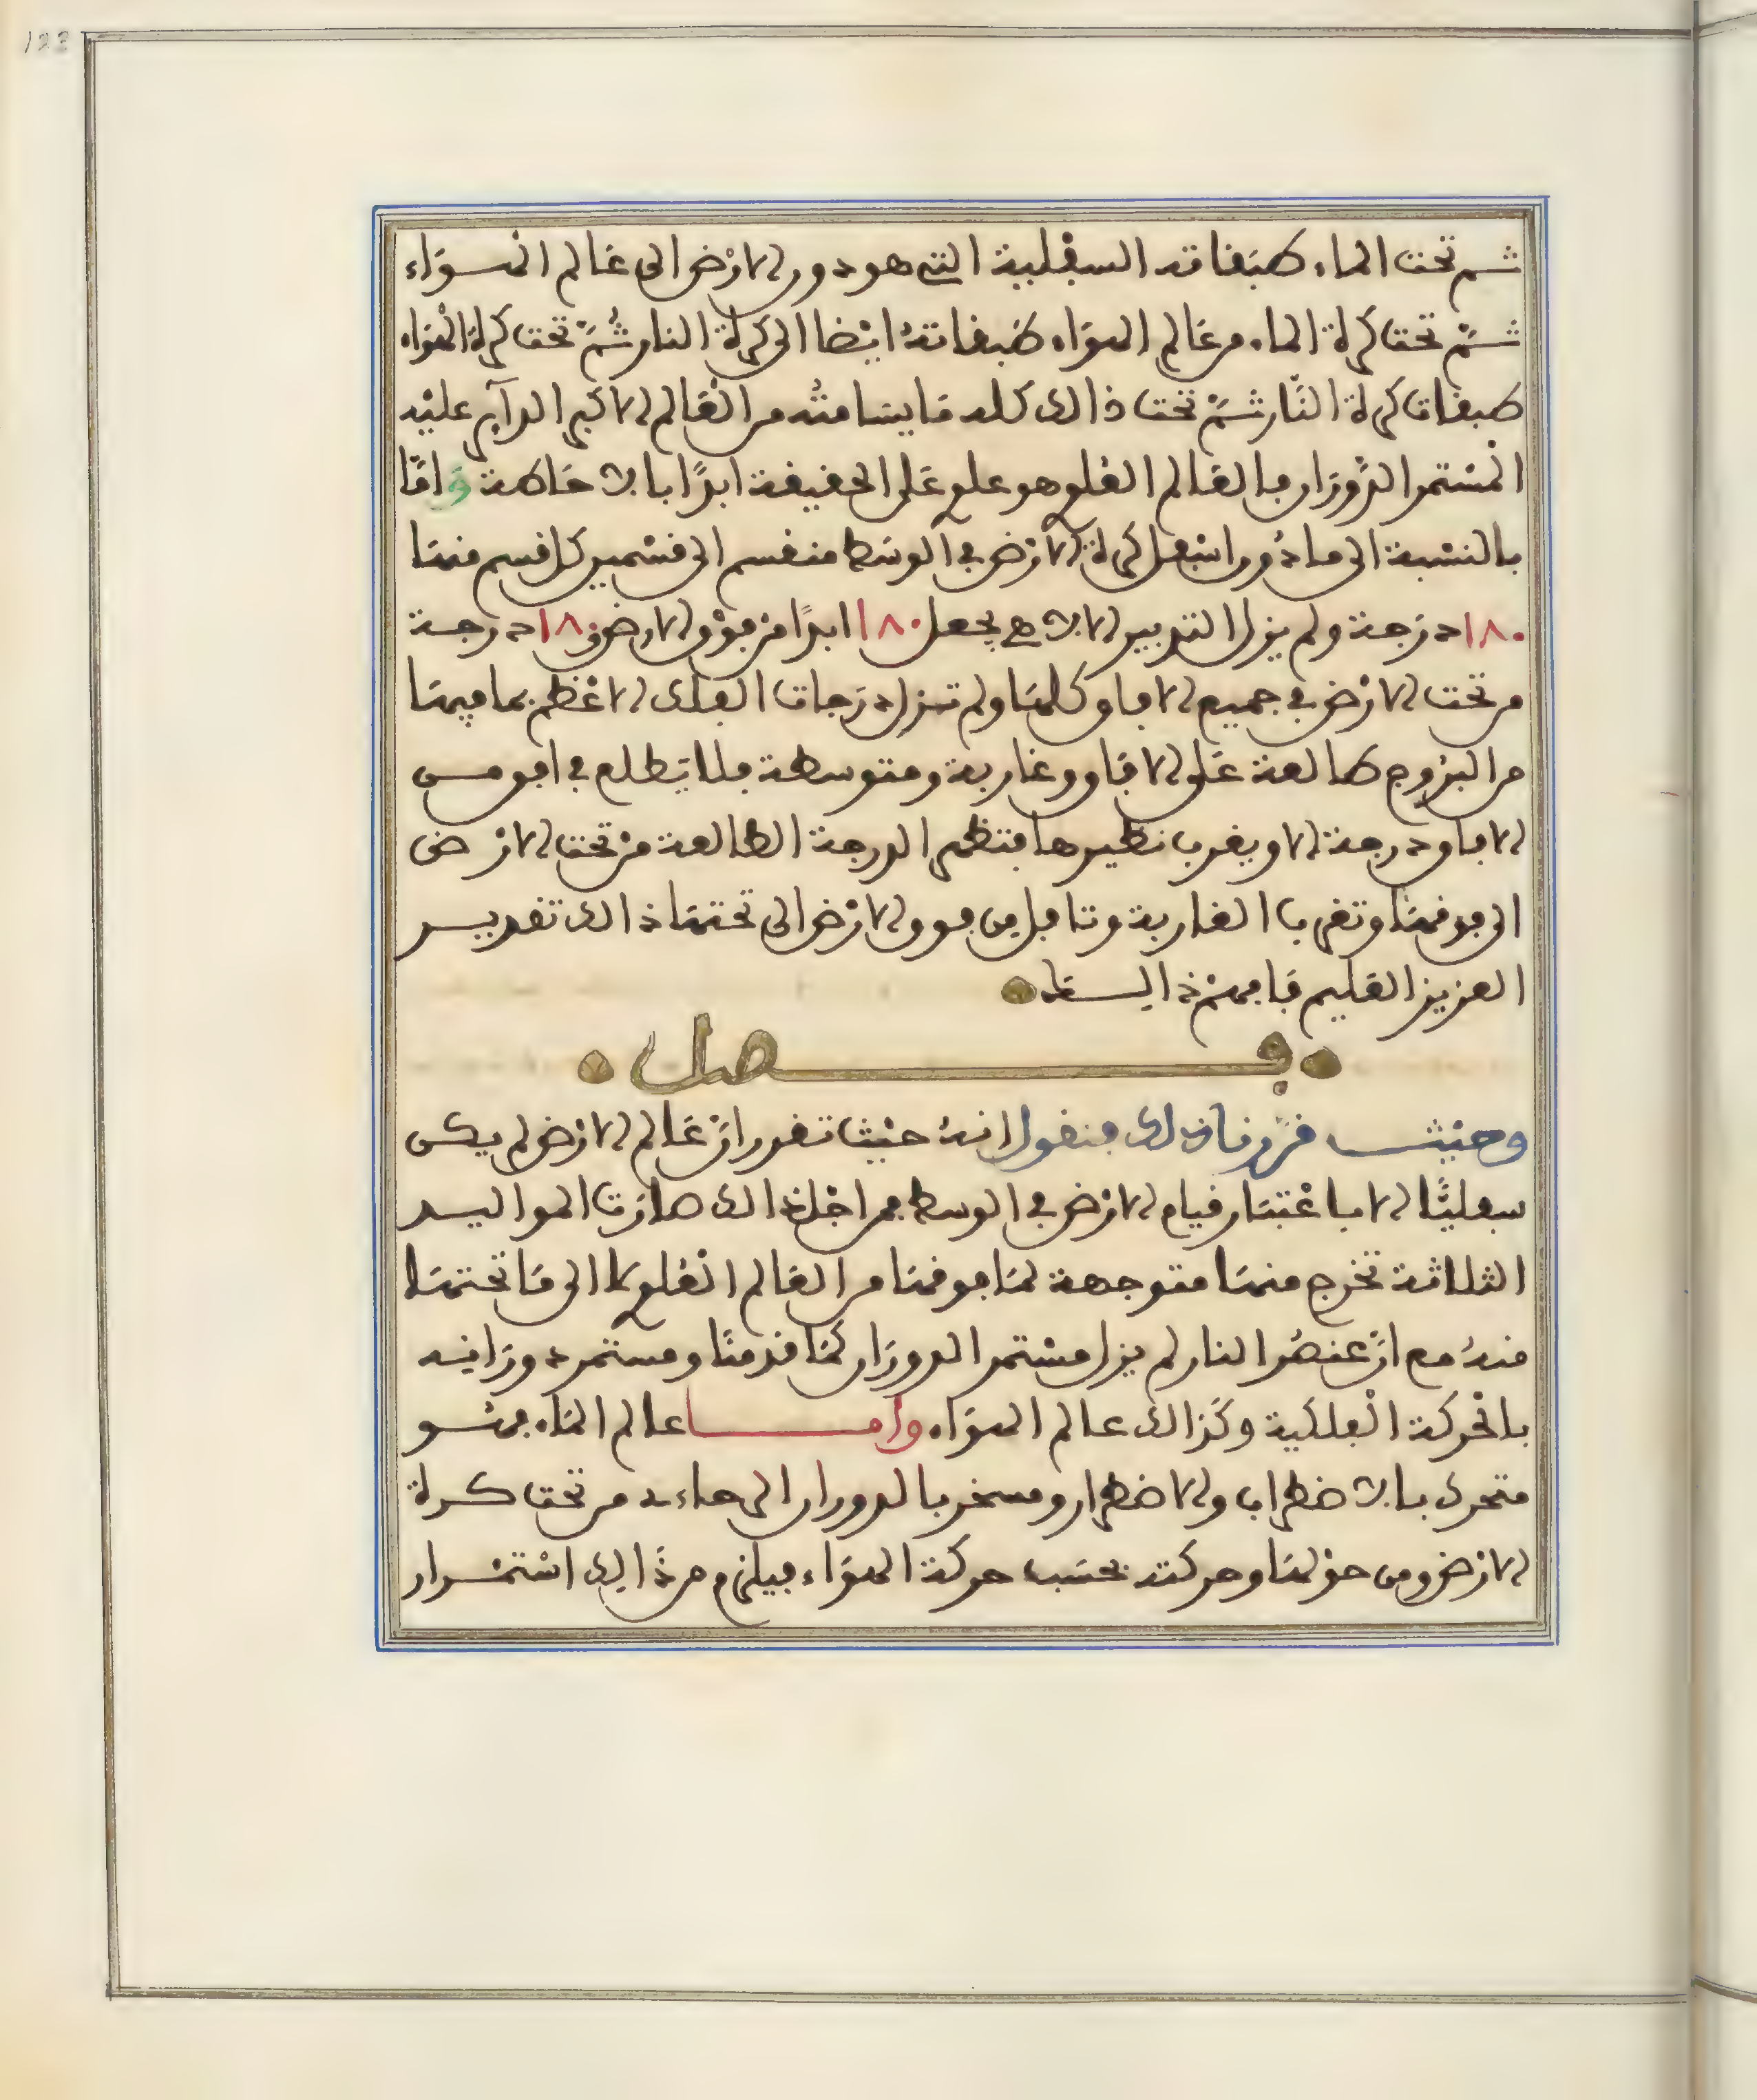 123
ثم تحت الماء طبقاته السفلية التي هو دور الارض الى عالم الهواء
ثم تحت كرة الماء من عالم الهواء طبقاته ايضا الى كرة النار ثم تحت كرة الهواء
طبقات كرة النار ثم تحت ذالك كله ما يسامته من العالم الاكبر الداير عليه
المستمر الدوران فالعالم العلوي علوي على الحقيقة ابدا بالاحاطة واما
بالنسبة الى ما دور اسفل كرة الارض في الوسط منقسم الى قسمين كل قسم منها
١٨٠ درجة ولم يزل التدبير الالاهي يجعل ١٨٠ ابدا من فوق الارض و١٨٠ درجة
من تحت الارض في جميع الافاق كلها ولم تزل درجات الفلك الاعظم بما فيها
من البروج طالعة على الافاق وغاربة ومتوسطة فلا يطلع في افق من
الافاق درجة الا ويغرب نظيرها فتظهر الدرجة الطالعة من تحت الارض
الى فوقها وتغرب الغاربة وتافل من فوق الارض الى تحتها ذالك تقدير
العزيز العليم فافهم ذالك
فصل
وحيث قررنا ذلك فنقول انه حيث تقرر ان عالم الارض لم يكن
سفليا الا باعتبار قيام الارض في الوسط فمن اجل ذالك صارت المواليد
الثلاثة تخرج منها متوجهة لما فوقها من العالم العلوي لا الى ما تحتها
منه مع ان عنصر النار لم يزل مستمر الدوران كما قدمنا ومستمر دورانه
بالحركة الفلكية وكذالك عالم الهواء واما عالم الماء فهو
متحرك بالاضطراب والاضطرار ومسخر بالدوران الى من تحت كرة
الارض ومن حولها وحركته بحسب حركة الهواء فيلزم من ذالك استمرار